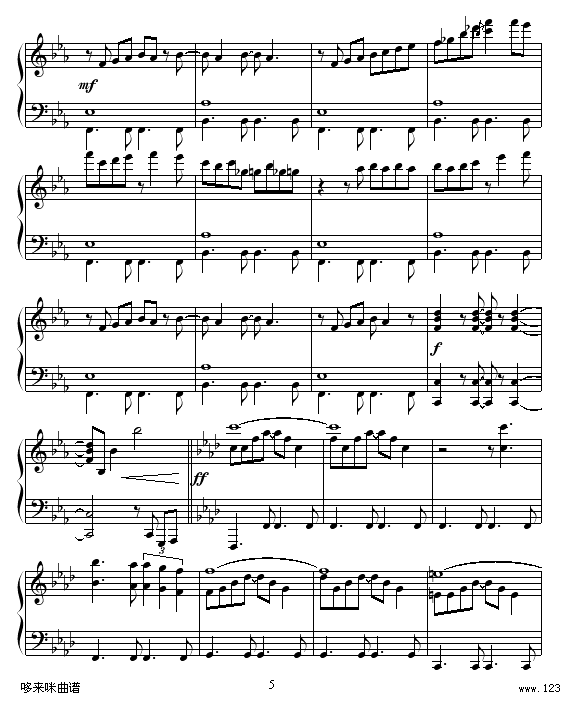 mf
f
ff
3
3
5
哆来咪曲谱
www.123